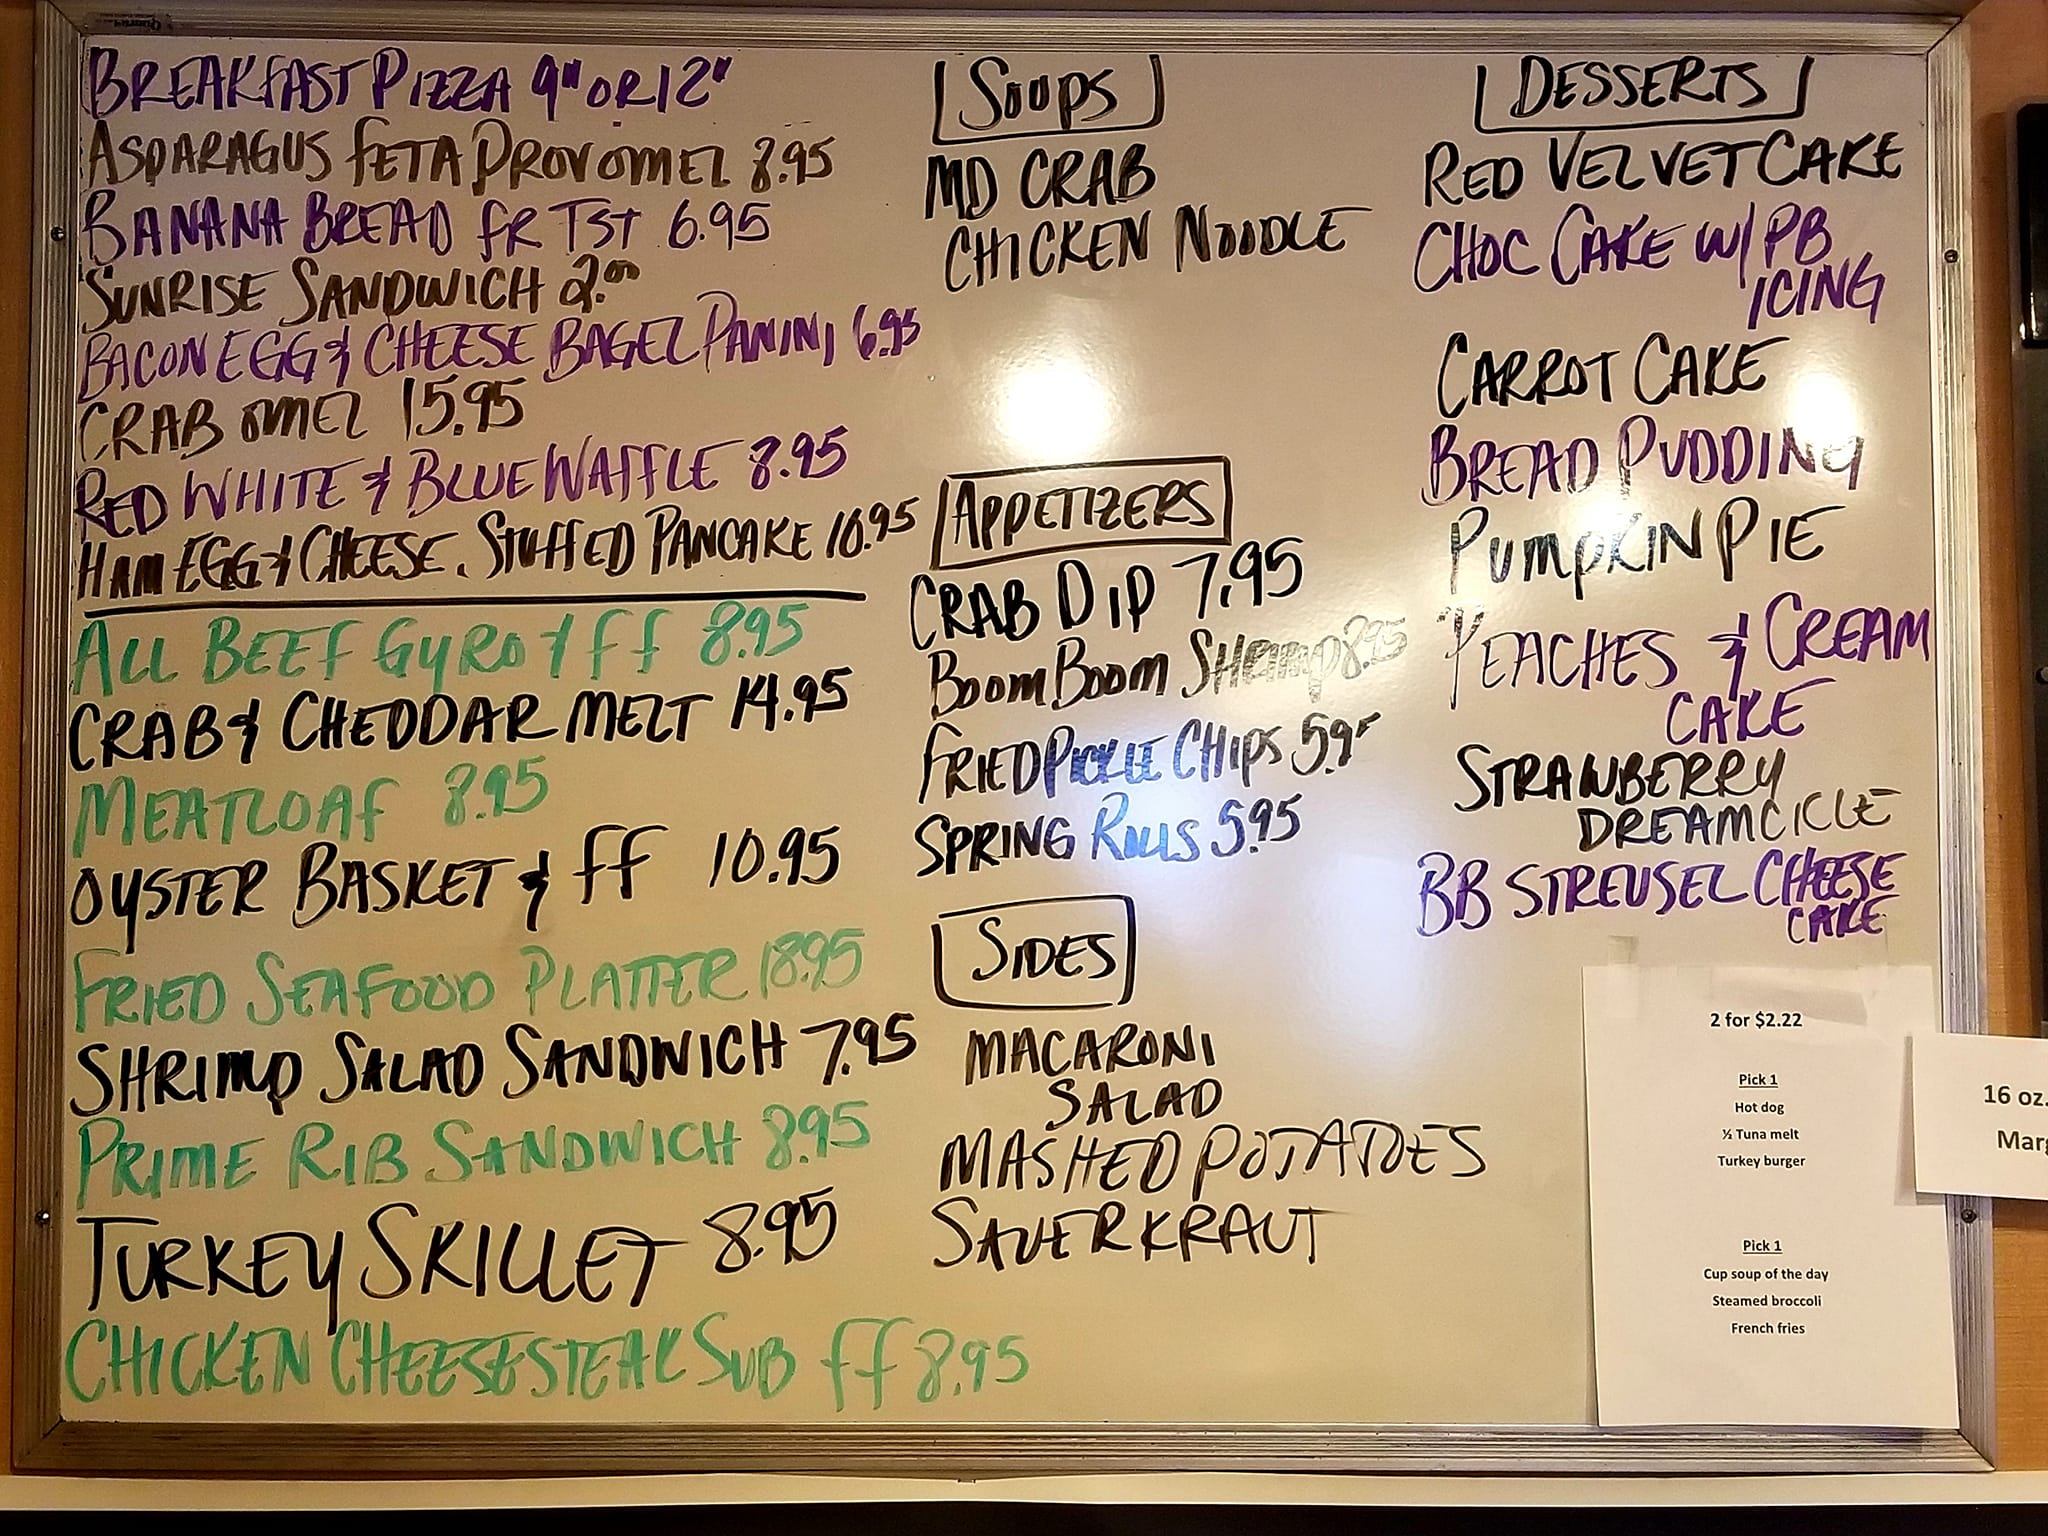 BREAKFAST PIZZA 9" OR 12"
ASPARAGUS FETA PROV OMEL 8.95
BANANA BREAD FR TST 6.95
SUNRISE SANDWICH 2.00
BACON EGG & CHEESE BAGEL PANINI 6.95
CRAB OMEL 15.95
RED WHITE & BLUE WAFFLE 8.95
HAM EGG & CHEESE. STUFFED PANCAKE 10.95
ALL BEEF GYRO & FF 8.95
CRAB & CHEDDAR MELT 14.95
MEATLOAF 8.95
OYSTER BASKET & FF 10.95
FRIED SEAFOOD PLATTER 18.95
SHRIMP SALAD SANDWICH 7.95
PRIME RIB SANDWICH 8.95
TURKEY SKILLET 8.95
CHICKEN CHEESESTEAK SUB FF 8.95
SOUPS
MD CRAB
CHICKEN NOODLE
APPETIZERS
CRAB DIP 7.95
BOOM BOOM SHRIMP 8.95
FRIED PICKLE CHIPS 5.95
SPRING ROLLS 5.95
SIDES
MACARONI
SALAD
MASHED POTATOES
SAUERKRAUT
DESSERTS
RED VELVET CAKE
CHOC CAKE W/ PB
ICING
CARROT CAKE
BREAD PUDDING
PUMPKIN PIE
PEACHES & CREAM
CAKE
STRAWBERRY
DREAMCICLE
BB STREUSEL CHEESE
CAKE
2 for $2.22
Pick 1
Hot dog
½ Tuna melt
Turkey burger
Pick 1
Cup soup of the day
Steamed broccoli
French fries
16 oz.
Marg